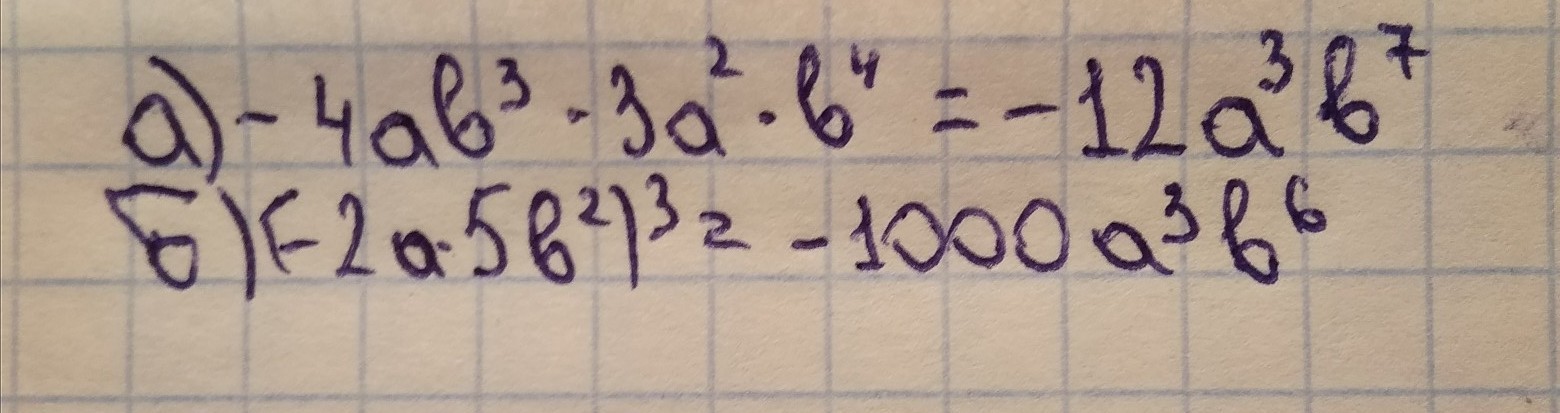 а) -4ab³ · 3a² · b⁴ = -12a³b⁷
б) (-2a·5b²)³ = -1000a³b⁶